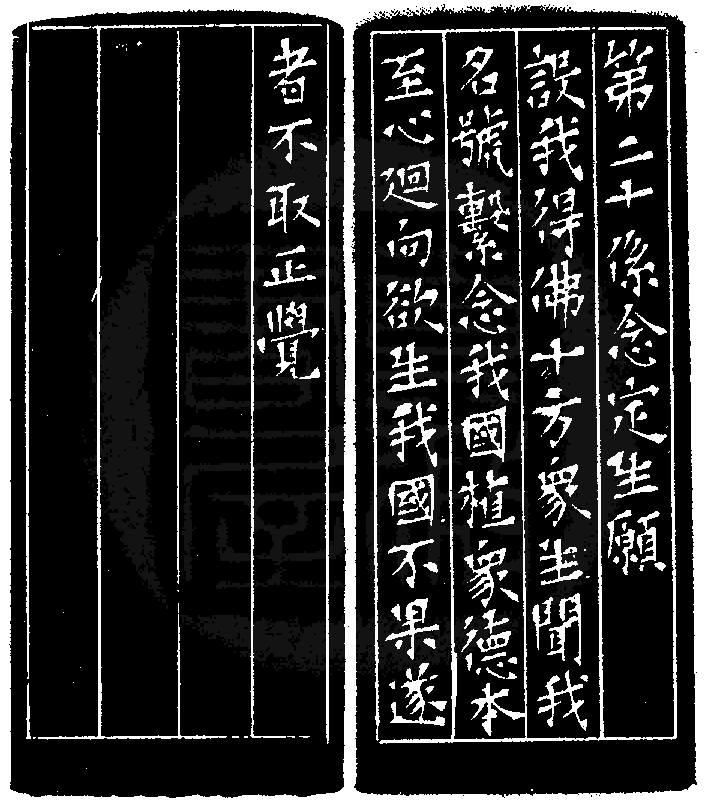 第二十係念定生願
設我得佛十方衆生聞我
名號繫念我國植衆德本
至心迴向欲生我國不果遂
者不取正覺